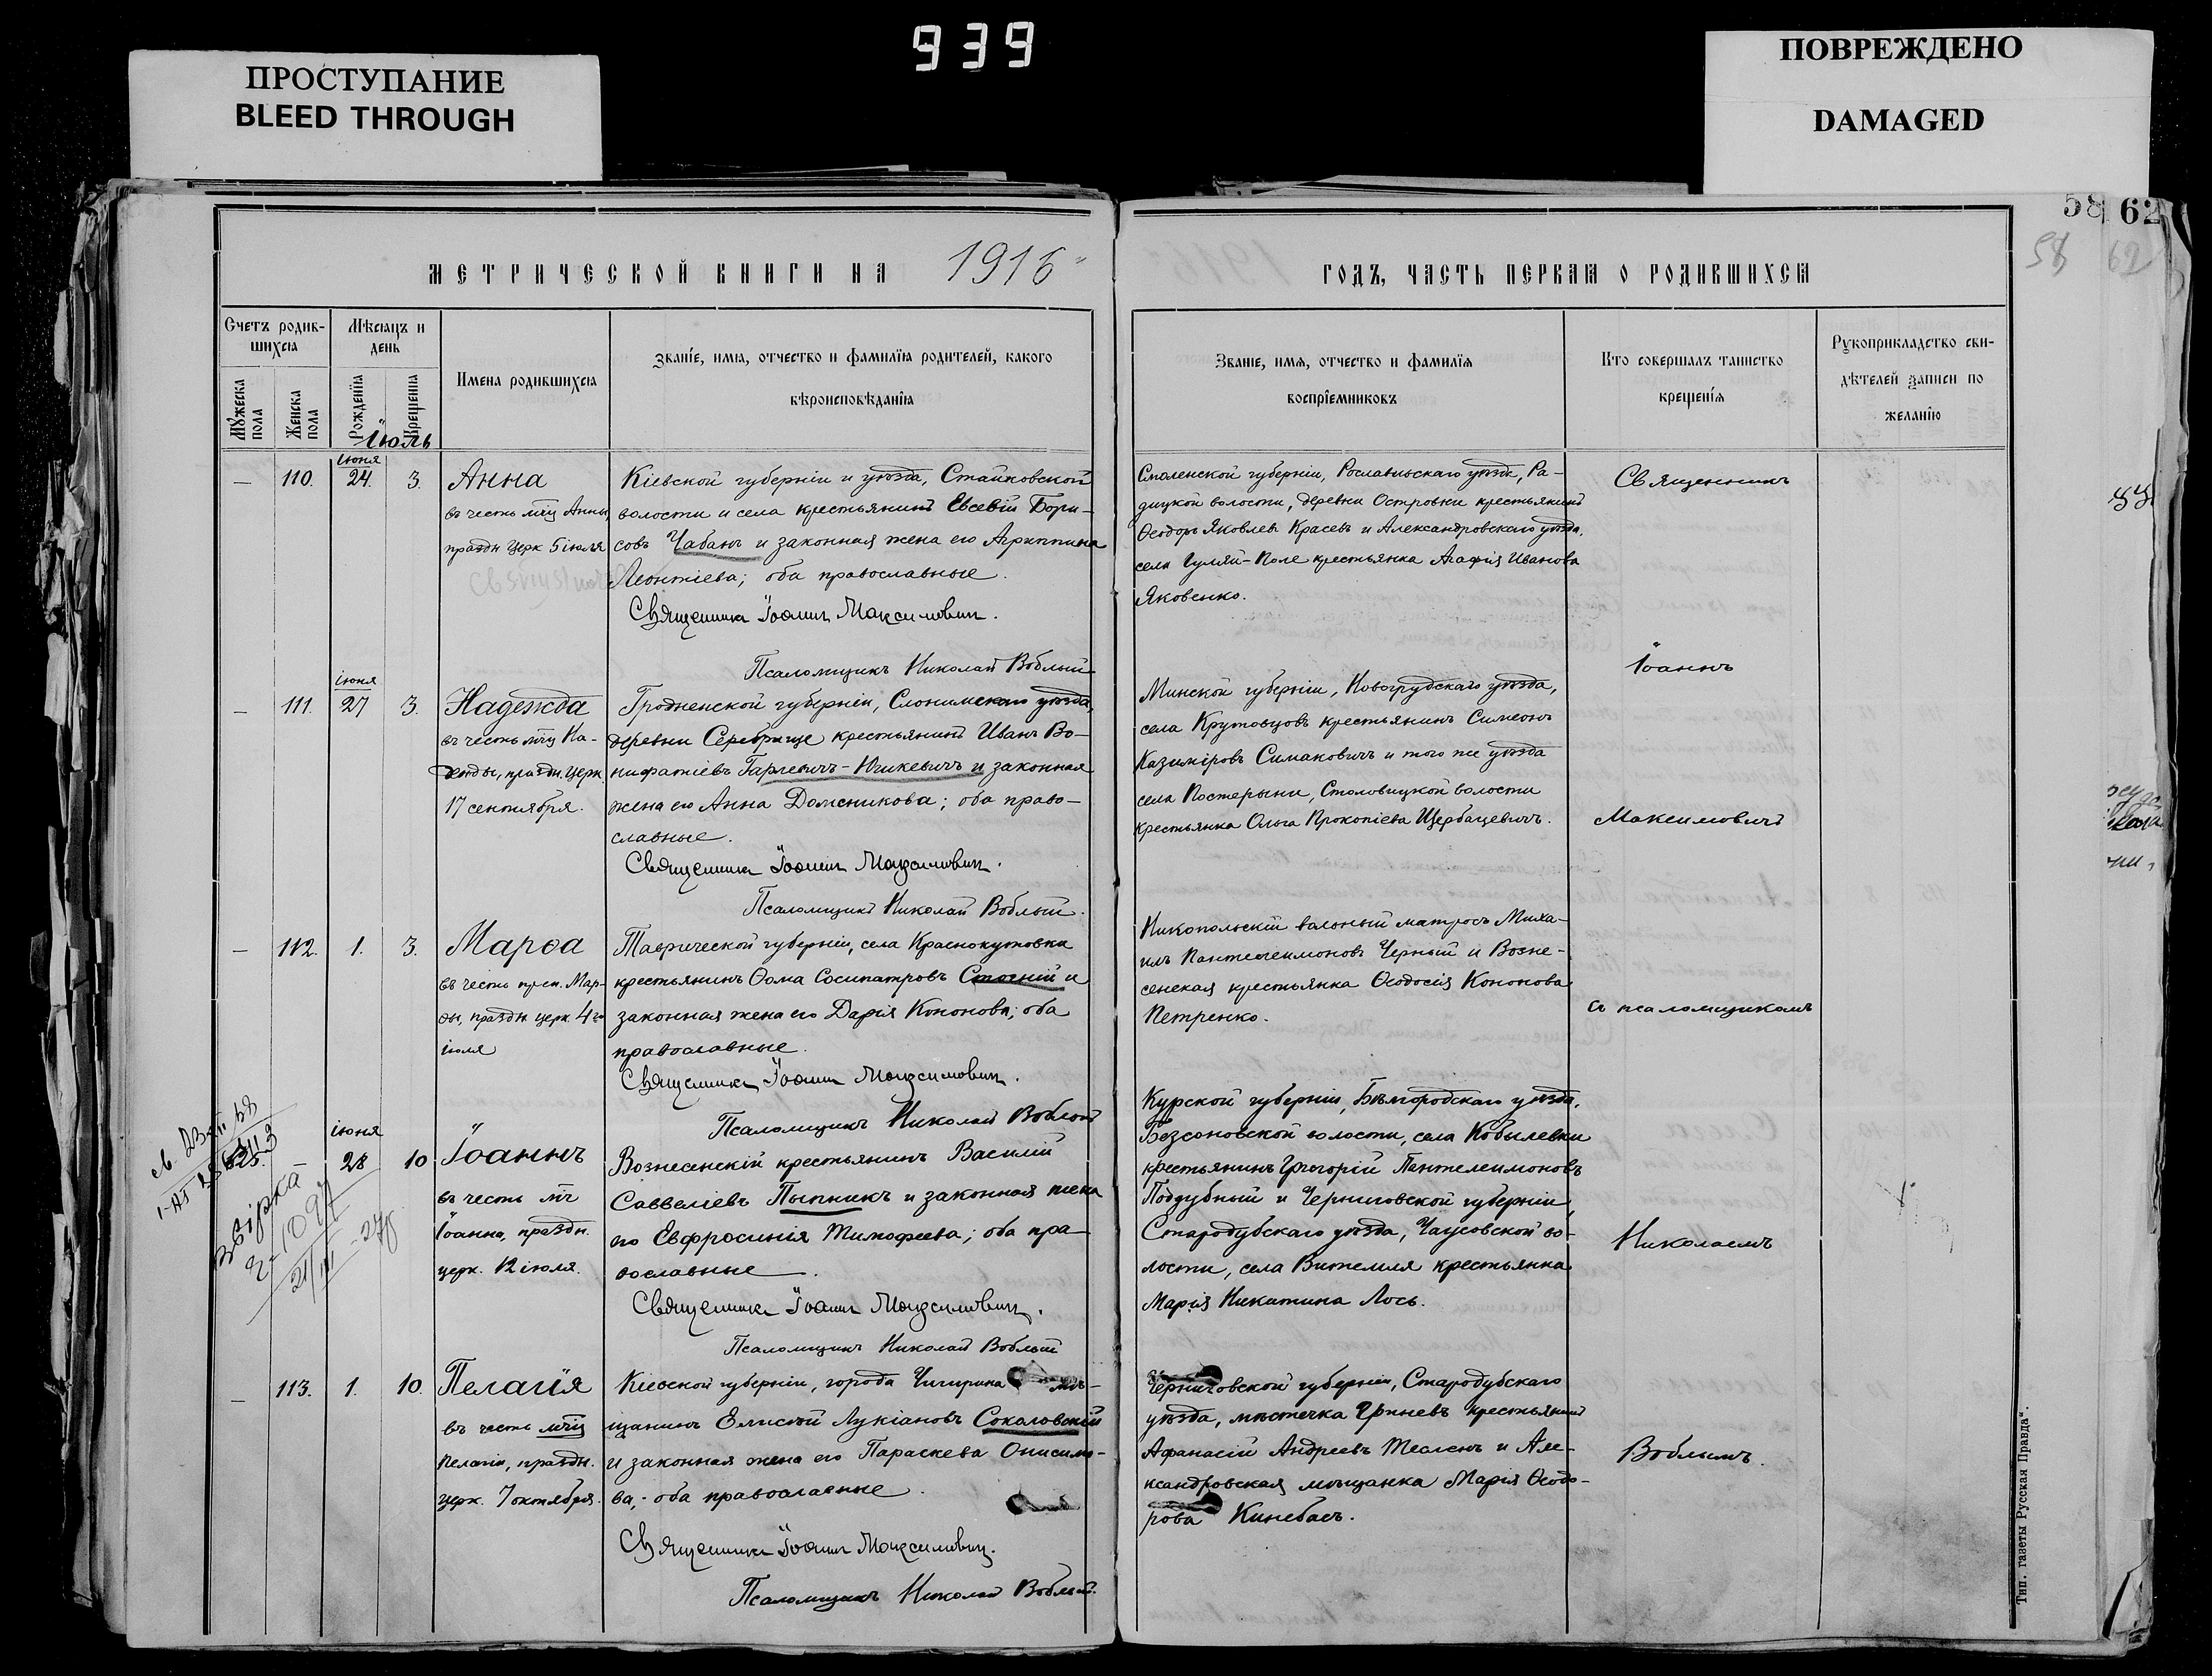 939
ПРОСТУПАНИЕ
BLEED THROUGH
ПОВРЕЖДЕНО
DAMAGED
58 62
58 62
МЕТРИЧЕСКОЙ КНИГИ НА 1916
ГОДЪ, ЧАСТЬ ПЕРВАЯ О РОДИВШИХСЯ
Счетъ родив-
шихся
Мѣсяцъ и
день
Мужеска пола
Женска пола
Рожденія
Крещенія
Имена родившихся
Званіе, имя, отчество и фамилія родителей, какого
вѣроисповѣданія
Званіе, имя, отчество и фамилія
воспріемниковъ
Кто совершалъ таинство
крещенія
Рукоприкладство сви-
дѣтелей записи по
желанію
Іюль
— 110. іюня 24. 3.
Анна
въ честь мц Анны,
праздн церк 5 іюля
Кіевской губерніи и уѣзда, Стайковской
волости и села крестьянинъ Евсевій Бори-
совъ Чабанъ и законная жена его Агриппина
Леонтіева; оба православные.
Священникъ Іоаннъ Максимовичъ.
Псаломщикъ Николай Воблый
Смоленской губерніи, Рославльскаго уѣзда, Ра-
дицкой волости, деревни Островки крестьянинъ
Ѳеодоръ Яковлевъ Красевъ и Александровскаго уѣзда,
села Гуляй-Поле крестьянка Агафія Иванова
Яковенко.
— 111. іюня 27 3.
Надежда
въ честь мц На-
дежды, праздн. церк
17 сентября.
Гродненской губерніи, Слонимскаго уѣзда,
деревни Серебрище крестьянинъ Иванъ Во-
нифатіевъ Гарлевичъ-Юшкевичъ и законная
жена его Анна Доменикова; оба право-
славные.
Священникъ Іоаннъ Максимовичъ.
Псаломщикъ Николай Воблый.
Минской губерніи, Новогрудскаго уѣзда,
села Крутовцовъ крестьянинъ Симеонъ
Казиміровъ Симаковичъ и того же уѣзда
села Постерыни, Столовицкой волости
крестьянка Ольга Прокопіева Щербацевичъ.
— 112. 1. 3.
Марѳа
въ честь преп. Мар-
ѳы, праздн церк. 4го
іюля
Таврической губерніи, села Краснокутовка
крестьянинъ Ѳома Сосипатровъ Стогній и
законная жена его Дарія Кононова; оба
православные.
Священникъ Іоаннъ Максимовичъ.
Псаломщикъ Николай Воблый
Никопольскій вольный матросъ Миха-
илъ Пантелеимоновъ Черный и Возне-
сенская крестьянка Ѳеодосія Кононова
Петренко.
іюня 28 10
Іоаннъ
въ честь мч
Іоанна, праздн.
церк. 12 іюля.
Вознесенскій крестьянинъ Василій
Савеліевъ Пыпникъ и законная жена
его Евфросинія Тимофеева; оба пра-
вославные.
Священникъ Іоаннъ Максимовичъ.
Псаломщикъ Николай Воблый
Курской губерніи, Бѣлгородскаго уѣзда,
Безсоновской волости, села Кобылевки
крестьянинъ Григорій Пантелеимоновъ
Поддубный и Черниговской губерніи,
Стародубскаго уѣзда, Чаусовской во-
лости, села Витемля крестьянка
Марія Никитина Лось.
звірка
— 113. 1. 10.
Пелагія
въ честь мчц
Пелагіи, праздн.
церк. 7 октября.
Кіевской губерніи, города Чигирина мѣ-
щанинъ Елисей Лукіановъ Сокаловскій
и законная жена его Параскева Онисимо-
ва; оба православные.
Священникъ Іоаннъ Максимовичъ.
Псаломщикъ Николай Воблый.
Черниговской губерніи, Стародубскаго
уѣзда, мѣстечка Гриневъ крестьянинъ
Афанасій Андреевъ Теслень и Але-
ксандровская мѣщанка Марія Ѳеодо-
рова Кинебасъ.
Священникъ
Іоаннъ
Максимовичъ
съ псаломщикомъ
Николаемъ
Воблымъ.
Тип. газеты „Русская Правда“.